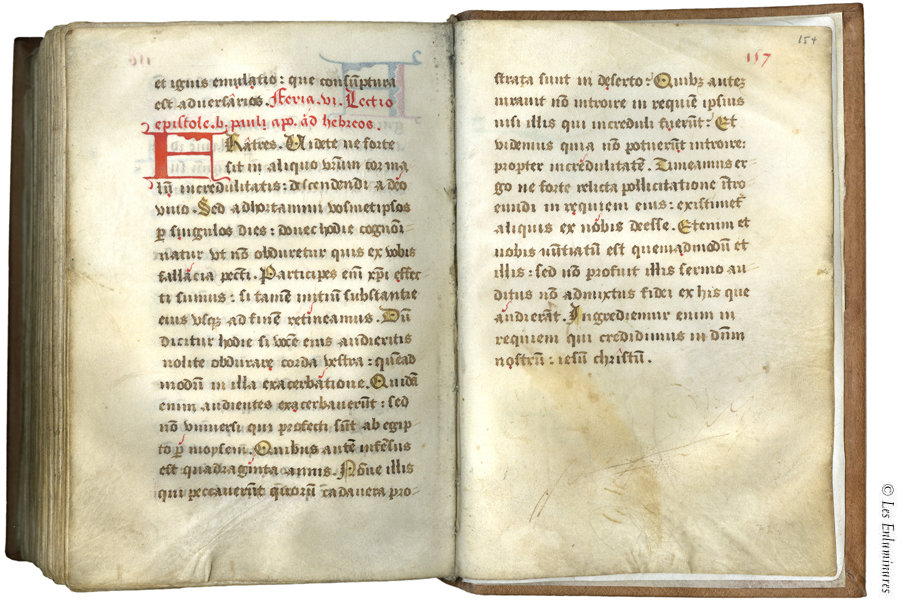 et ignis emulatio : que consūptura
est adversarios. Feria. vi. Lectio
epistole. b. pauli apo. ad hebreos.
FRatres. Videte ne forte
sit in aliquo vr̄um cor ma
lū incredulitatis : descendendi a deo
vivo. Sed adhortamini vosmetipsos
p singulos dies : donec hodie cognoi
natur vt nō obduretur quis ex vobis
fallacia pecti. Participes eni xpi effec
ti sumus : si tamē initiū substantie
eius vsq ad finē retineamus. Dū
dicitur hodie si vocē eius audieritis
nolite obdurare corda vestra : quēad
modū in illa exacerbatione. Quidā
enim audientes exacerbaverūt : sed
nō vniversi qui profecti sūt ab egip
to p moysem. Quibus autē infēsus
est quadraginta annis. Nōne illis
qui peccaverūt quorū cadavera pro-
154
157
strata sunt in deserto : Quibz autez
iuravit nō introire in requiē ipsius
nisi illis qui increduli fuerūt : Et
videmus quia nō potuerūt introire :
propter incredulitatē. Timeamus er-
go ne forte relicta pollicitatione itro
eundi in requiem eius : existimet
aliquis ex nobis deesse. Etenim et
nobis nūtiatū est quemadmodū et
illis : sed nō profuit illis sermo au-
ditus nō admixtus fidei ex his que
audierāt. Ingrediemur enim in
requiem qui credidimus in dnm
nostrū : iesū christū.
© Les Enluminures